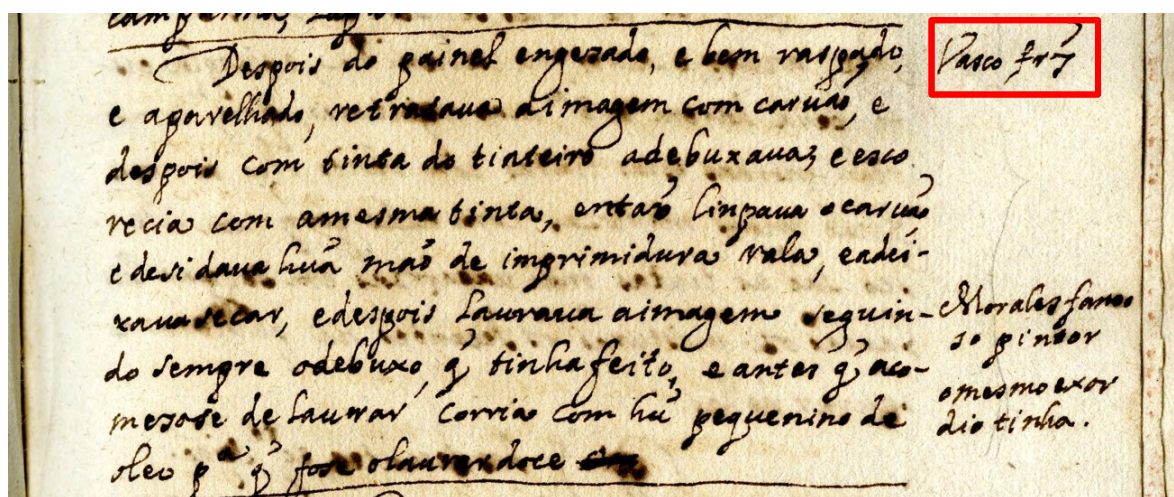 Despois do painel engesado, e bem raspado,
e aparelhado, retratava a imagem com carvaõ, e
despois com tinta do tinteiro adebuxava, e esco
recia com amesma tinta, entaõ limpava o carvaõ
e desi dava huã maõ de imprimidura rala, eadei-
xava secar, edespois Laurava aimagem seguin-
do sempre odebuxo, q̃ tinha feito, e antes q̃ aco-
mesase de Laurar Corria com hũ pequenino de
oleo pª q̃ fose olaurar doce
Vasco frz̃
Morales famo
so pintor
omesmo exor
dio tinha.